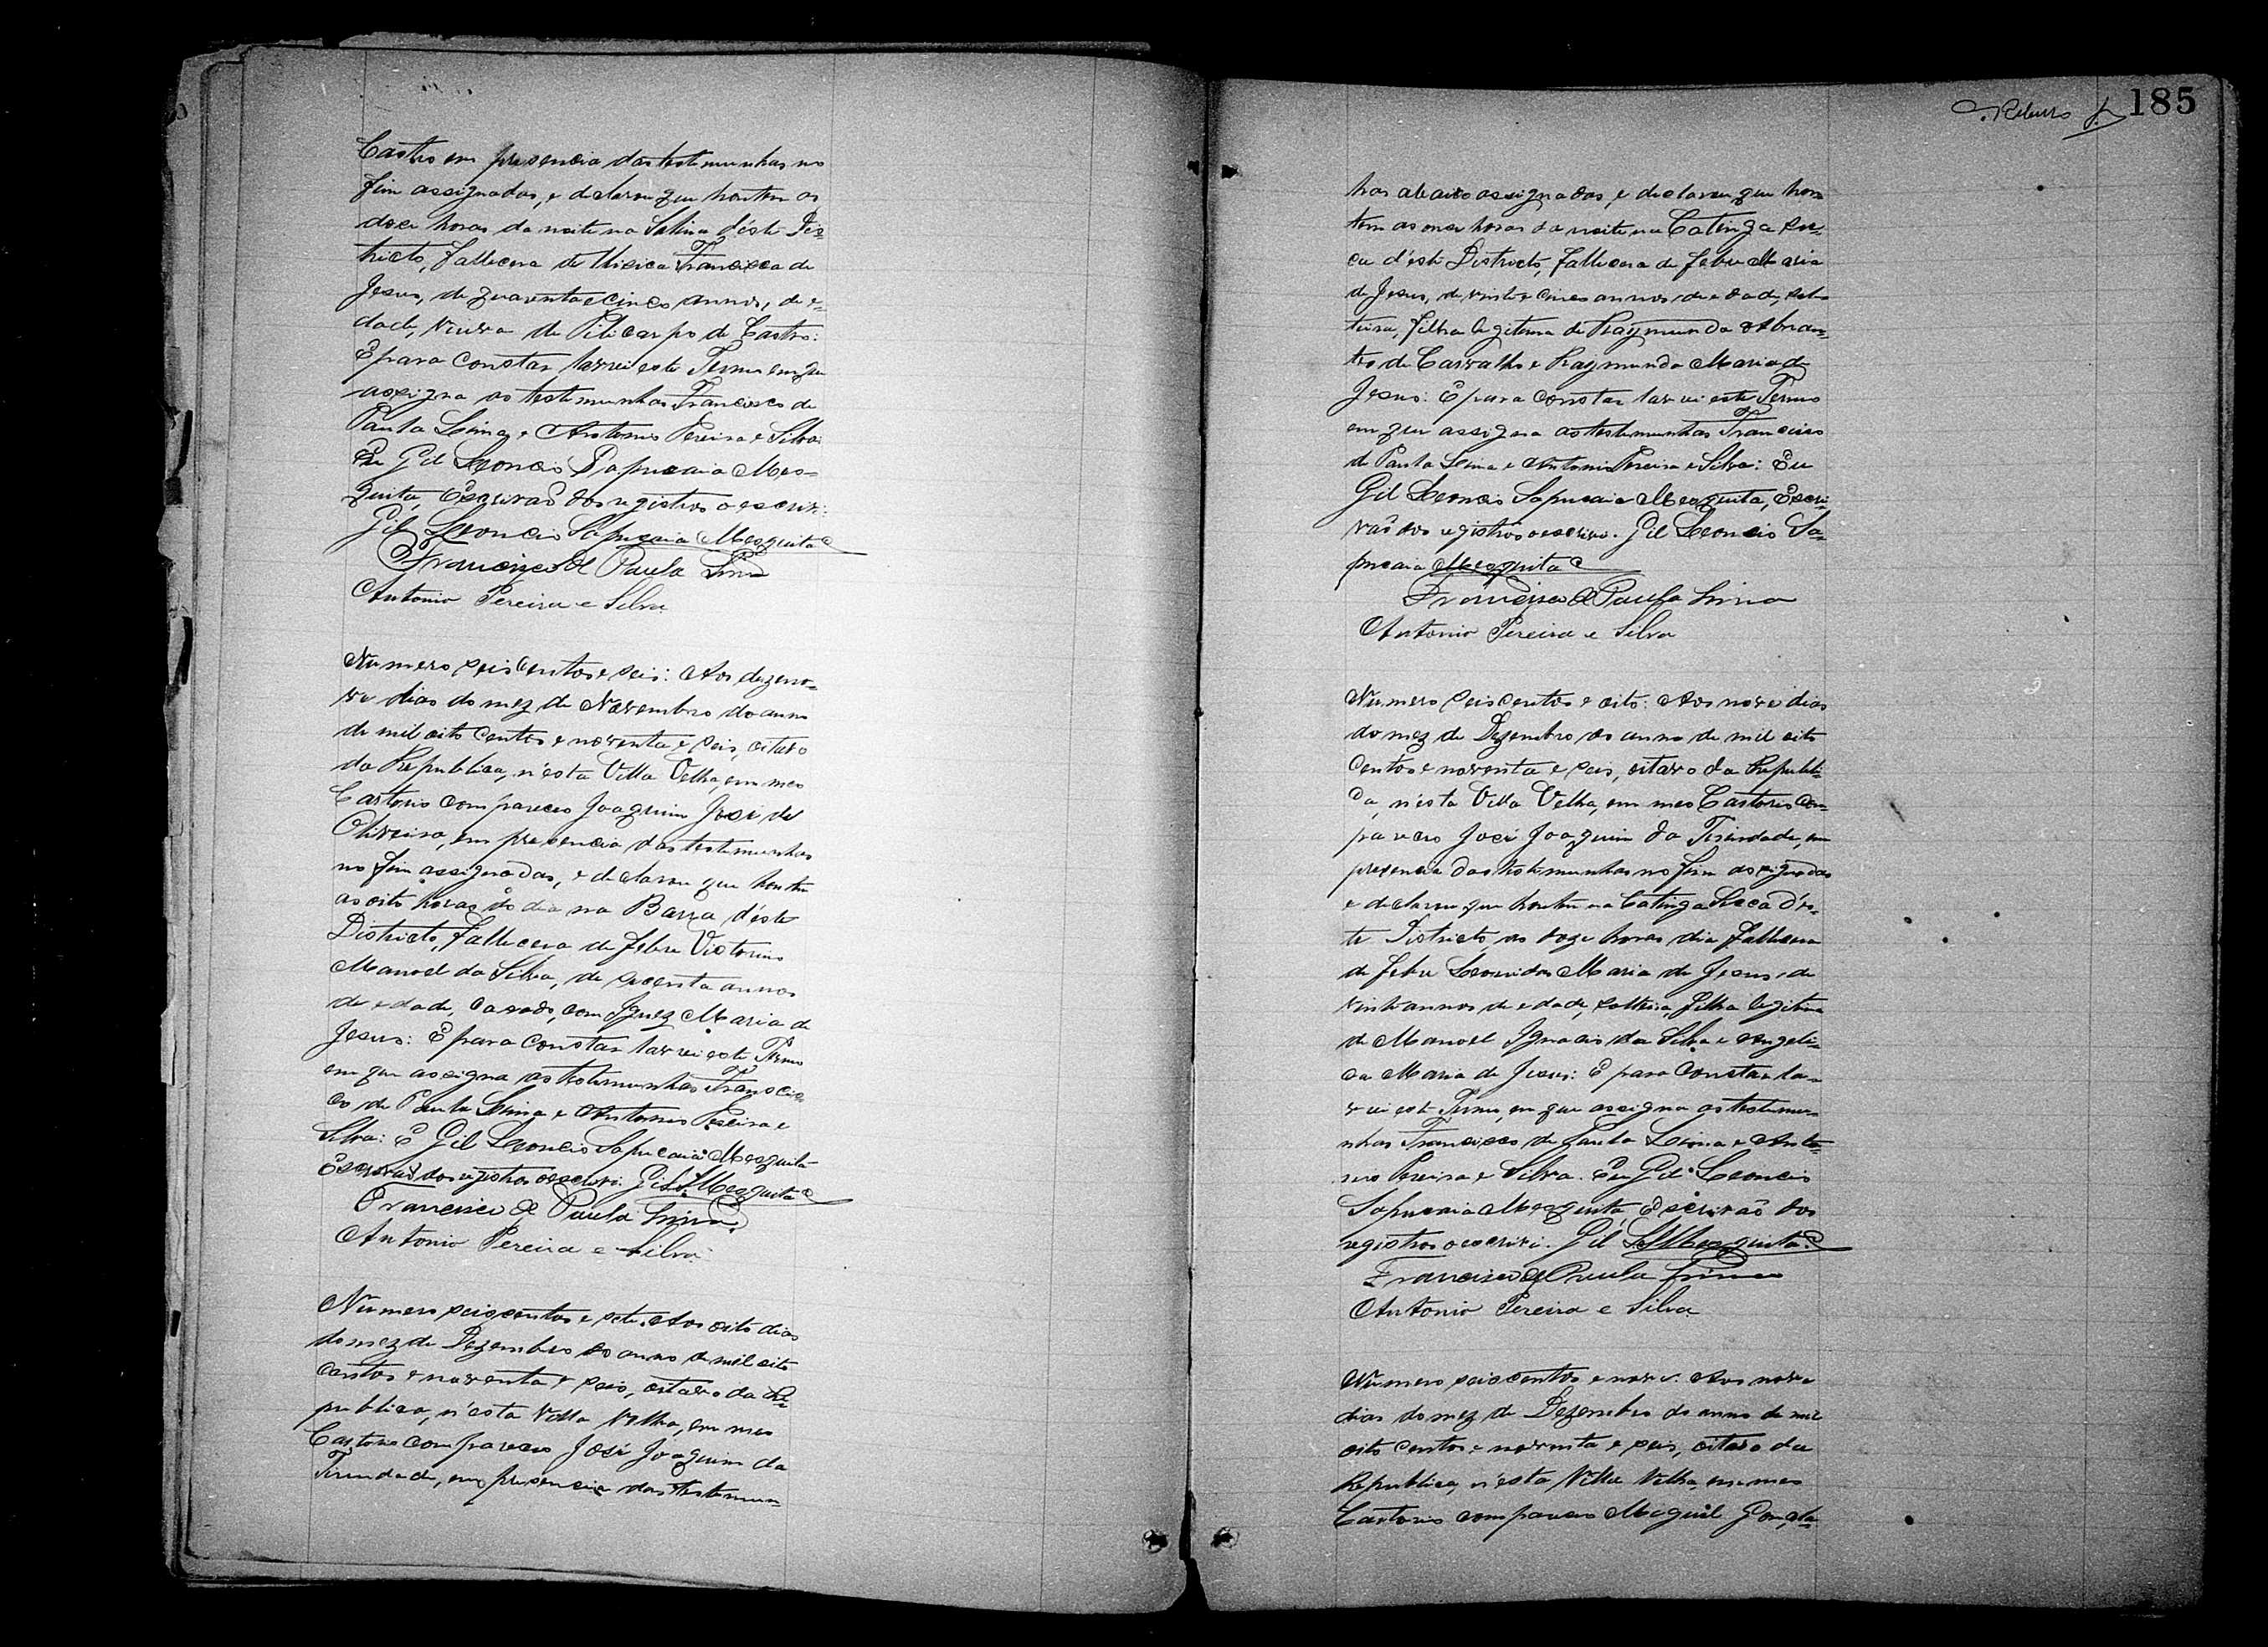 Castro em presencia das testemunhas no
fim assignadas, e declarou que hontem as
doze horas da noite na Salina d'éste Dis-
tricto, fallecera de Francisca de
Jesus, de quarenta e cinco annos, de e-
dade, viuva de Pilicarpo de Castro:
E para constar lavrei este Termo em que
assigna as testemunhas Francisco de
Paula Lima e Antonio Pereira e Silva:
Eu Gil Leoncio Sapucaia Mes-
quita, Escrivaõ dos registros o escrivi:
Gil Leoncio Sapucaia Mesquita
Francisco de Paula Lima
Antonio Pereira e Silva
Numero seis centos e seis: Aos dezeno-
ve dias do mez de Novembro do anno
de mil oito centos e noventa e seis, oitavo
da Republica, n'esta Villa Velha, em meo
Cartorio compareceo Joaquim José de
Oliveira, em presencia das testemunhas
no fim assignadas, e declarou que hontem
as oito horas do dia na Barra d'éste
Districto, fallecera de febre Victorino
Manoel da Silva, de secenta annos
de edade, casado, com Ignez Maria de
Jesus: E para constar lavrei este Termo
em que assigna as testemunhas Francis-
co de Paula Lima e Antonio Pereira e
Silva: E Gil Leoncio Sapucaia Mesquita
Escrivaõ dos registros o escrivi: Gil L. S. Mesquita
Francisco de Paula Lima
Antonio Pereira e Silva
Numero seis centos e sete. Aos oito dias
do mez de Dezembro do anno de mil oito
centos e noventa e seis, oitavo da Re-
publica, n'esta Villa Velha, em meo
Cartorio compareceo José Joaquim da
Trindade, em presencia das testemun-
Ribeiro Jr 185
has abaixo assignadas, e declarou que hon-
tem as onze horas da noite na Catinga se-
ca d'éste Districto, fallecera de febre Maria
de Jesus, de vinte e cinco annos de edade, sol-
teira, filha legitima de Raymundo Abran-
tes de Carvalho e Raymunda Maria de
Jesus: E para constar lavrei este Termo
em que assigna as testemunhas Francisco
de Paula Lima e Antonio Pereira e Silva: Eu
Gil Leoncio Sapucaia Mesquita, Escri-
vaõ dos registros o escrivi. Gil Leoncio Sa-
pucaia Mesquita
Francisco de Paula Lima
Antonio Pereira e Silva
Numero seis centos e oito: Aos nove dias
do mez de Dezembro do anno de mil oito
centos e noventa e seis, oitavo da Republi-
ca, n'esta Villa Velha, em meo Cartorio com-
pareceo José Joaquim da Trindade, em
presencia das testemunhas no fim assignadas
e declarou que hontem na Catinga Secca d'és-
te Districto, as doze horas dia fallecera
de febre Leonidas Maria de Jesus, de
vinte annos de edade, solteira, filha legitima
de Manoel Ignacio da Silva e Angeli-
ca Maria de Jesus: E para constar la-
vrei este Termo, em que assigna as testemu-
nhas Francisco de Paula Lima e Anto-
nio Pereira e Silva. Eu Gil Leoncio
Sapucaia Mesquita, Escrivaõ dos
registros o escrivi. Gil L. S. Mesquita
Francisco de Paula Lima
Antonio Pereira e Silva
Numero seis centos e nove. Aos nove
dias do mez de Dezembro do anno de mil
oito centos e noventa e seis, oitavo da
Republica, n'esta Villa Velha, em meo
Cartorio compareceo Miguel Gonçal-